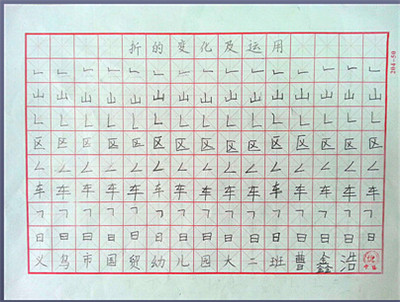 折的变化及运用
山山山山山山山山山山山山山山山
区区区区区区区区区区区区区区区
车车车车车车车车车车车车车车车
日日日日日日日日日日日日日日日
义乌市国贸幼儿园大二班曹鑫浩